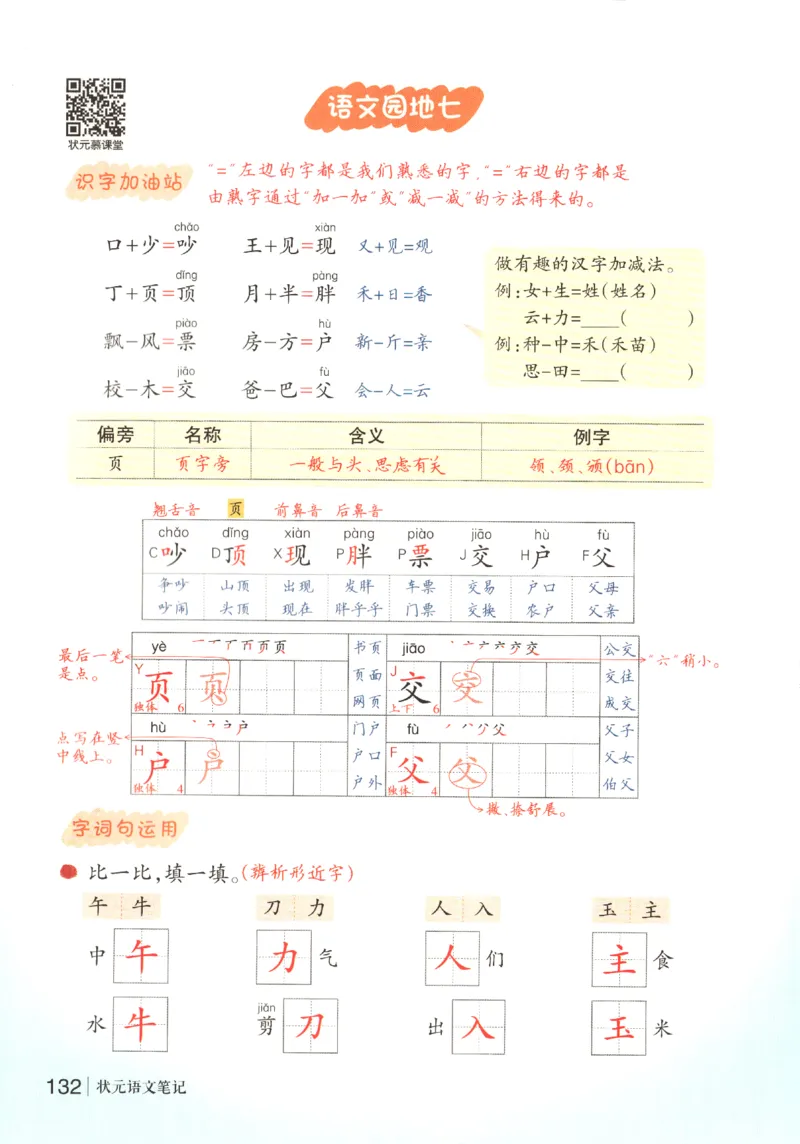 状元慕课堂
语文园地七
识字加油站
“=”左边的字都是我们熟悉的字,“=”右边的字都是
由熟字通过“加一加”或“减一减”的方法得来的。
chǎo xiàn
口+少=吵 王+见=现 又+见=观
dǐng pàng
丁+页=顶 月+半=胖 禾+日=香
piào hù
飘-风=票 房-方=户 新-斤=亲
jiāo fù
校-木=交 爸-巴=父 会-人=云
做有趣的汉字加减法。
例:女+生=姓(姓名)
云+力=____( )
例:种-中=禾(禾苗)
思-田=____( )
偏旁 名称 含义 例字
页 页字旁 一般与头、思虑有关 领、颈、颁(bān)
翘舌音 页 前鼻音 后鼻音
chǎo dǐng xiàn pàng piào jiāo hù fù
C吵 D顶 X现 P胖 P票 J交 H户 F父
争吵 山顶 出现 发胖 车票 交易 户口 父母
吵闹 头顶 现在 胖乎乎 门票 交换 农户 父亲
最后一笔
是点。
yè
Y 页 页
独体 6
书页
页面
网页
jiāo
J 交 交
上下 6
公交
交往
成交
“六”稍小。
点写在竖
中线上。
hù
H 户 户
独体 4
门户
户口
户外
fù
F 父 父
独体 4
父子
父女
伯父
撇、捺舒展。
字词句运用
比一比,填一填。(辨析形近字)
午 牛 刀 力 人 入 玉 主
中午 力气 人们 主食
jiǎn
水牛 剪刀 出入 玉米
132 状元语文笔记